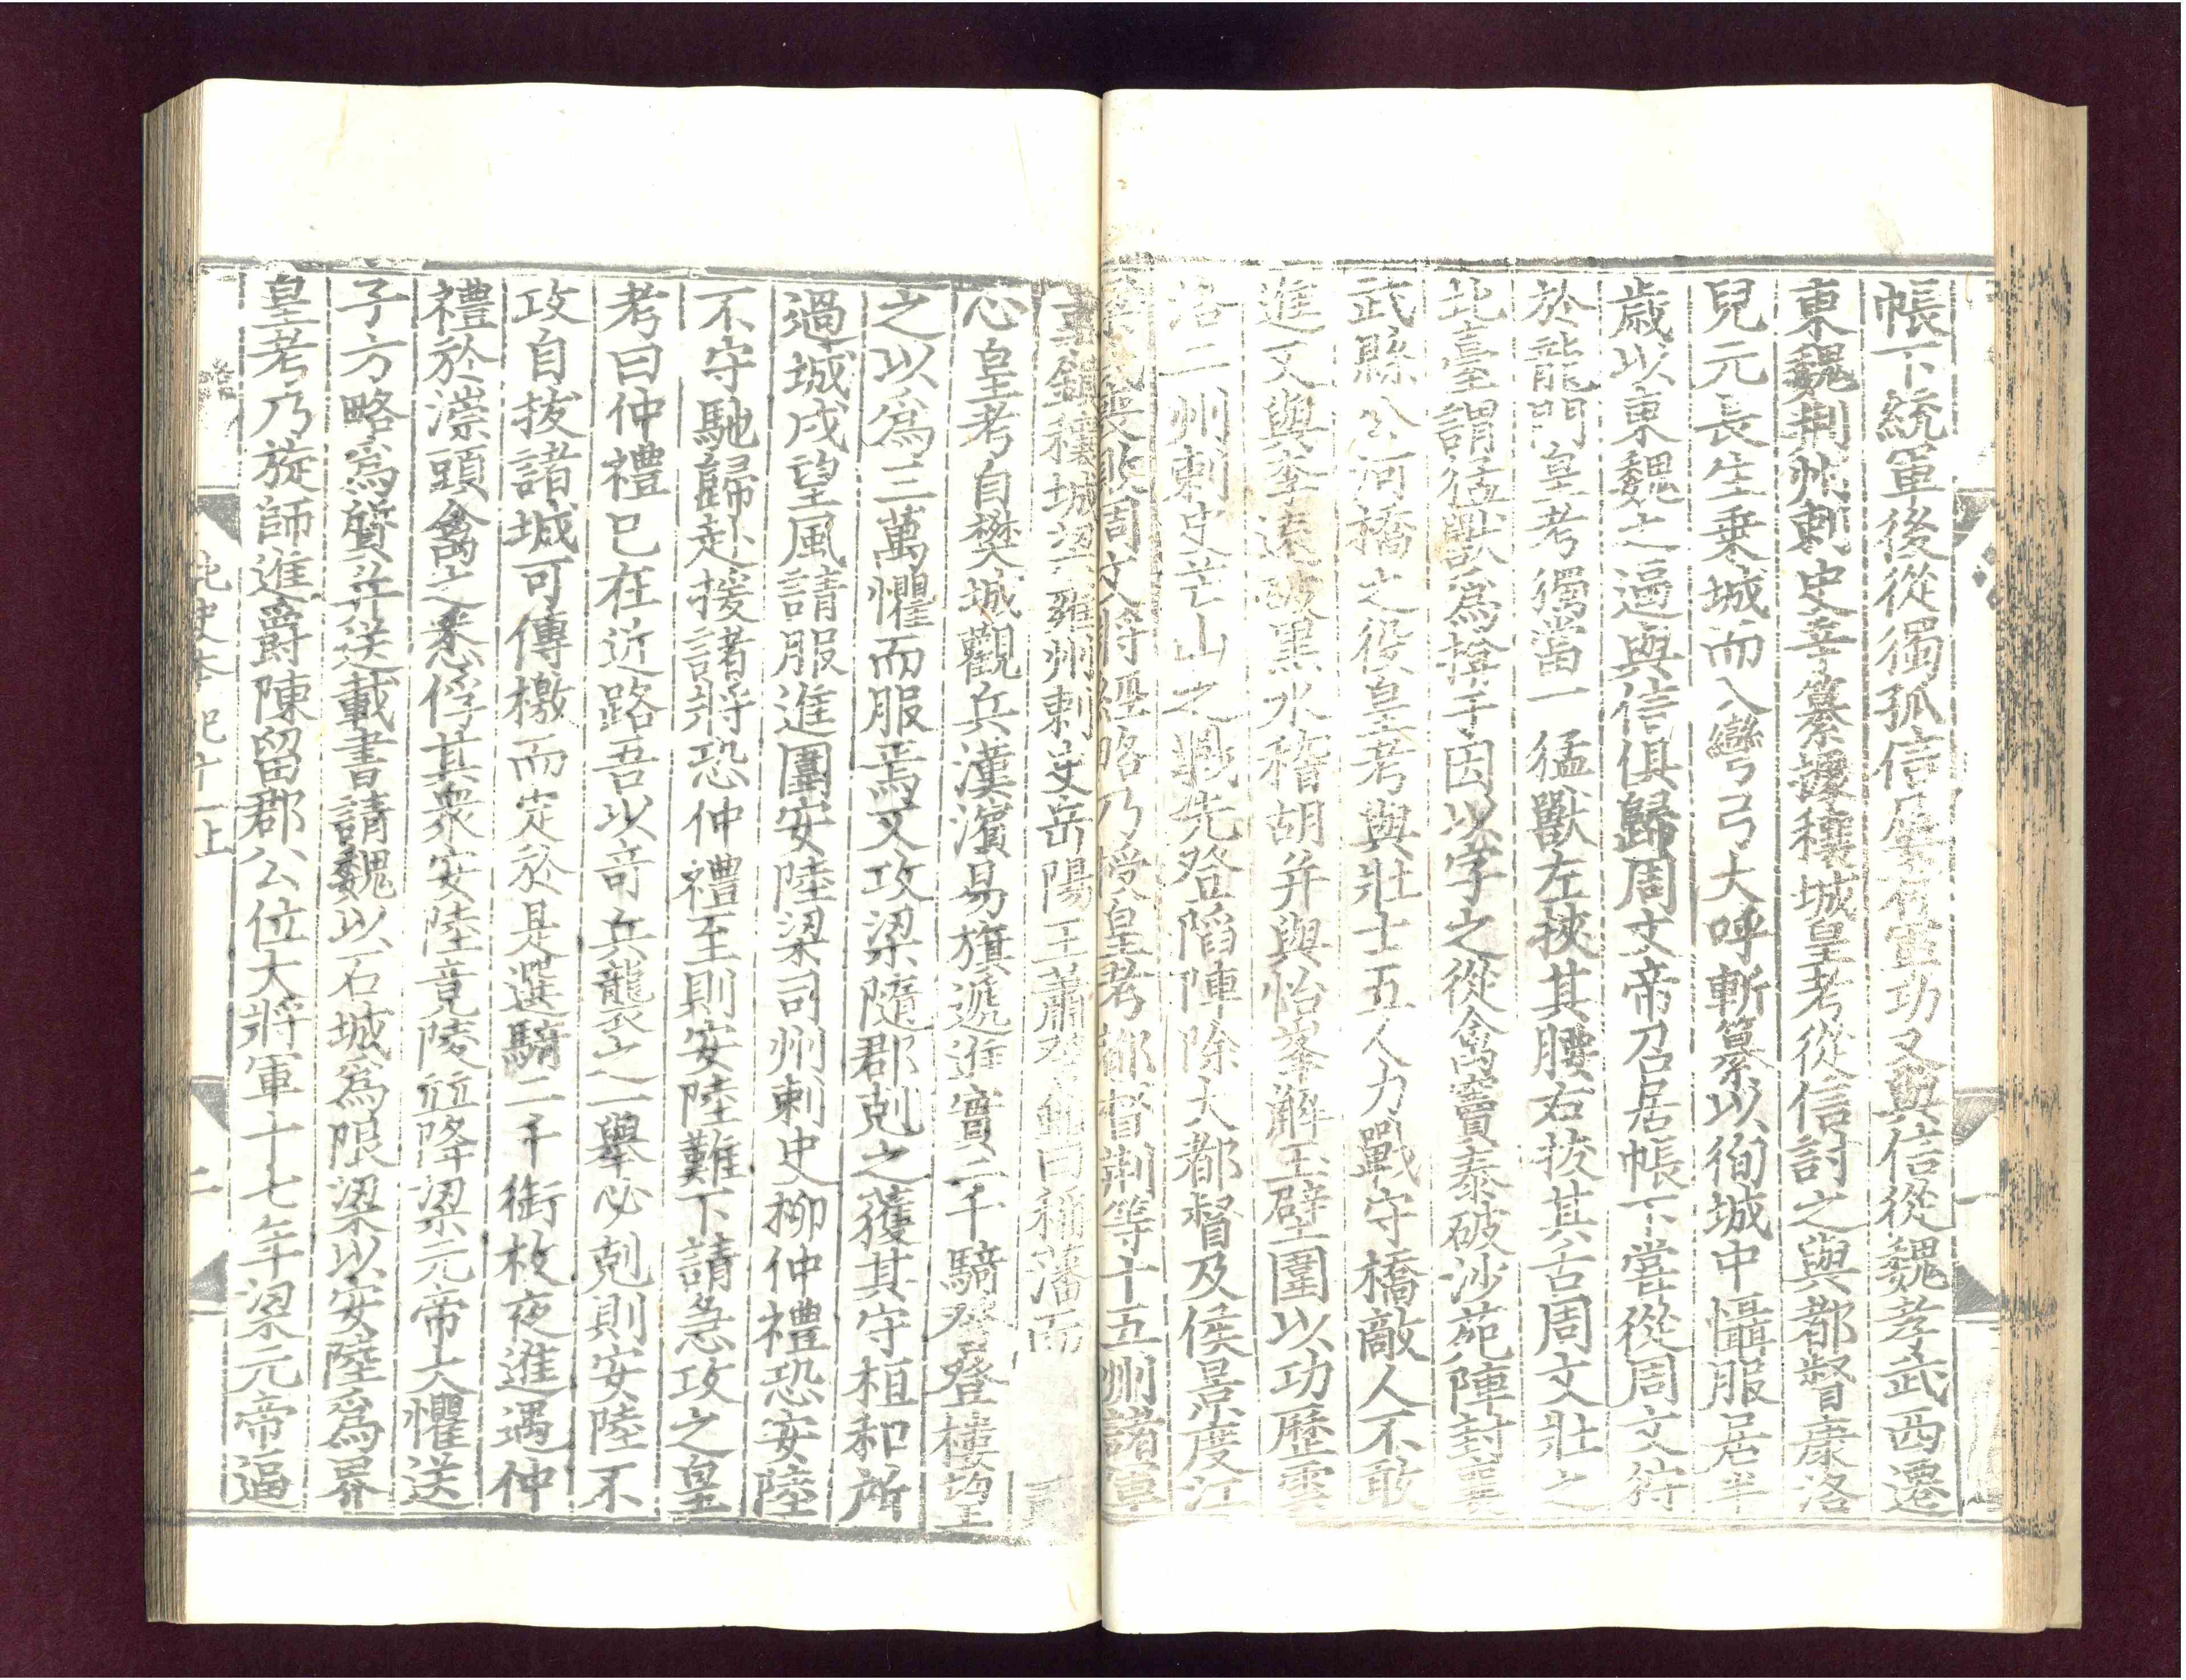 帳下統軍後從獨孤信屢有軍功又與信從魏孝武西遷
東魏荊州刺史辛纂據穰城皇考從信討之與都督康洛
兒元長生乗城而入彎弓大呼斬纂以徇城中懾服居半
歲以東魏之逼與信俱歸周文帝召居帳下嘗從周文狩
於龍門皇考獨當一猛獸左挾其腰右拔其舌周文壯之
北臺謂猛獸爲揜于因以字之從禽竇泰破沙苑陣封襄
武縣公河橋之役皇考與壯士五人力戰守橋敵人不敢
進又與李遠破黑水稽胡并與怡峯解玉壁圍以功歷雲
洛二州刺史芒山之戰先登陷陣除大都督及侯景度江
喪敗周文將經略乃授皇考都督荊等十五州諸軍
鎮穰城雍州刺史岳陽王蕭詧雖曰稱藩而
心皇考自樊城觀兵漢濱易旗遞進實二千騎登樓望
之以爲三萬懼而服焉又攻梁隨郡剋之獲其守桓和所
過城戍望風請服進圍安陸梁司州刺史柳仲禮恐安陸
不守馳歸赴援諸將恐仲禮至則安陸難下請急攻之皇
考曰仲禮已在近路吾以竒兵襲之一舉必剋則安陸不
攻自拔諸城可傳檄而定於是選騎二千銜枚夜進遇仲
禮於漴頭禽之悉俘其衆安陸竟陵並降梁元帝大懼送
子方略爲質并送載書請魏以石城爲限梁以安陸爲界
皇考乃旋師進爵陳留郡公位大將軍十七年梁元帝逼
北史本紀十一上
二